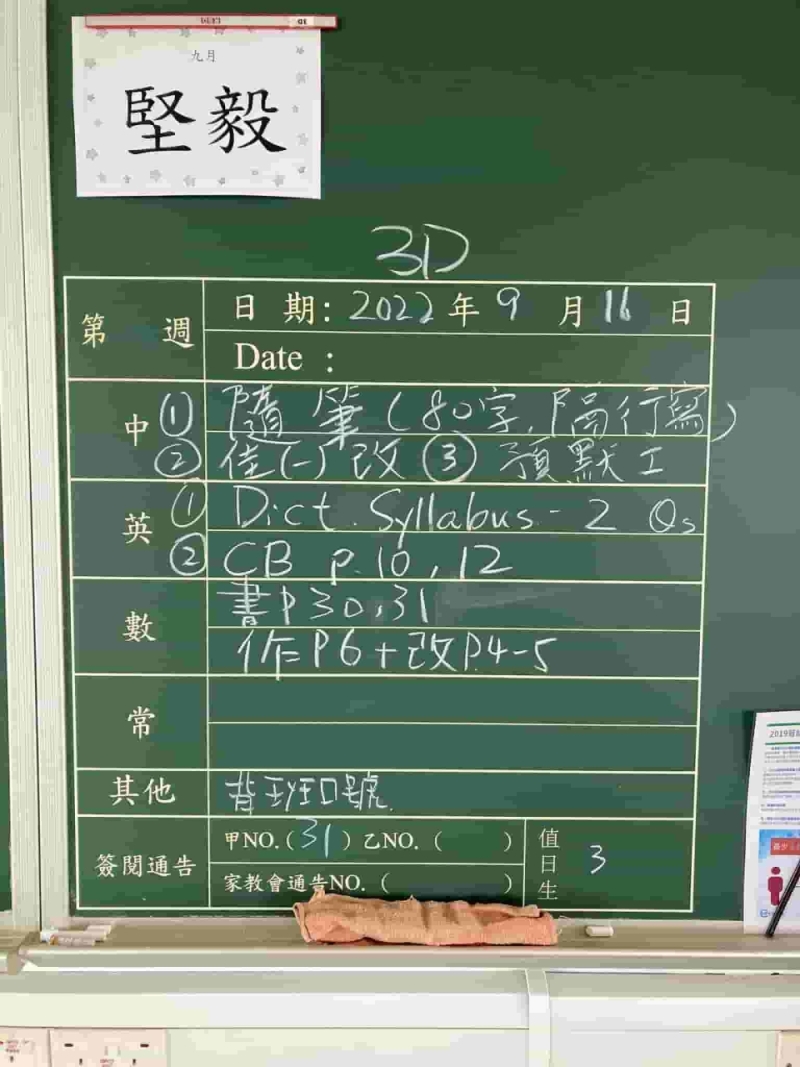 九月
堅毅
3D
第 週
日 期: 2022 年 9 月 16 日
Date :
中 ① 隨筆(80字,隔行寫)
② 佳(一)改 ③ 預默工
英 ① Dict. Syllabus - 2 Qs
② CB p.10, 12
數 書P30,31
作P6+改P.4-5
常
其他 背班口號.
簽閱通告 甲NO.(31) 乙NO.( )
家教會通告NO.( )
值日生 3